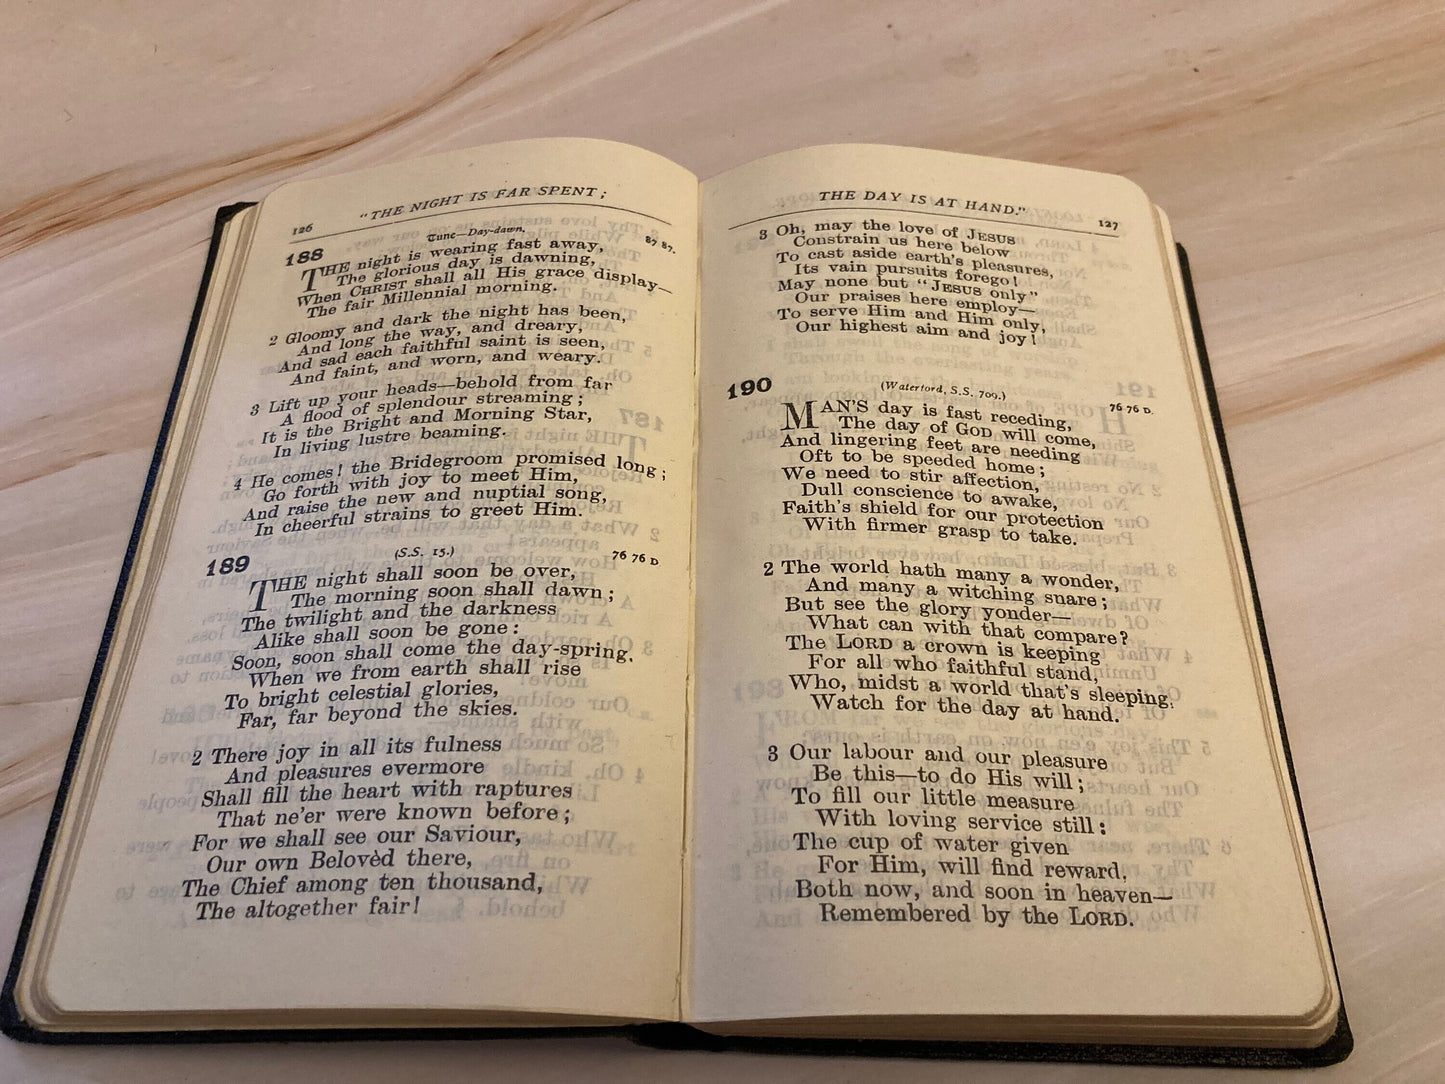 126
"THE NIGHT IS FAR SPENT;
188
Tune—Day-dawn.
87 87.
THE night is wearing fast away,
The glorious day is dawning,
When CHRIST shall all His grace display—
The fair Millennial morning.
2 Gloomy and dark the night has been,
And long the way, and dreary,
And sad each faithful saint is seen,
And faint, and worn, and weary.
3 Lift up your heads—behold from far
A flood of splendour streaming;
It is the Bright and Morning Star,
In living lustre beaming.
4 He comes! the Bridegroom promised long;
Go forth with joy to meet Him,
And raise the new and nuptial song,
In cheerful strains to greet Him.
189
(S.S. 15.)
76 76 D
THE night shall soon be over,
The morning soon shall dawn;
The twilight and the darkness
Alike shall soon be gone:
Soon, soon shall come the day-spring,
When we from earth shall rise
To bright celestial glories,
Far, far beyond the skies.
2 There joy in all its fulness
And pleasures evermore
Shall fill the heart with raptures
That ne'er were known before;
For we shall see our Saviour,
Our own Belovèd there,
The Chief among ten thousand,
The altogether fair!
THE DAY IS AT HAND."
127
3 Oh, may the love of JESUS
Constrain us here below
To cast aside earth's pleasures,
Its vain pursuits forego!
May none but "JESUS only"
Our praises here employ—
To serve Him and Him only,
Our highest aim and joy!
190
(Waterford, S.S. 709.)
76 76 D.
MAN'S day is fast receding,
The day of GOD will come,
And lingering feet are needing
Oft to be speeded home;
We need to stir affection,
Dull conscience to awake,
Faith's shield for our protection
With firmer grasp to take.
2 The world hath many a wonder,
And many a witching snare;
But see the glory yonder—
What can with that compare?
The LORD a crown is keeping
For all who faithful stand,
Who, midst a world that's sleeping,
Watch for the day at hand.
3 Our labour and our pleasure
Be this—to do His will;
To fill our little measure
With loving service still:
The cup of water given
For Him, will find reward,
Both now, and soon in heaven—
Remembered by the LORD.